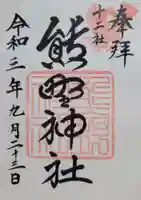 奉拝
十二社
熊野神社
令和三年九月二十三日